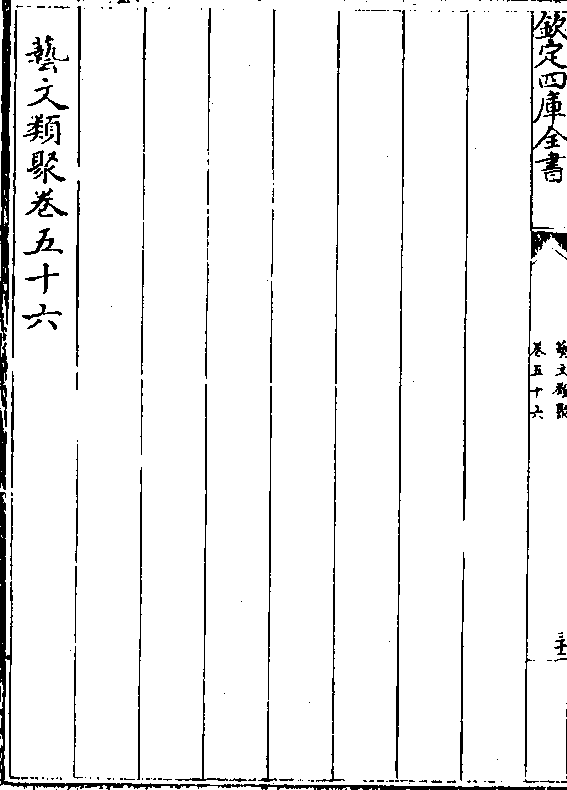 欽定四庫全書
藝文類聚
卷五十六
藝文類聚卷五十六